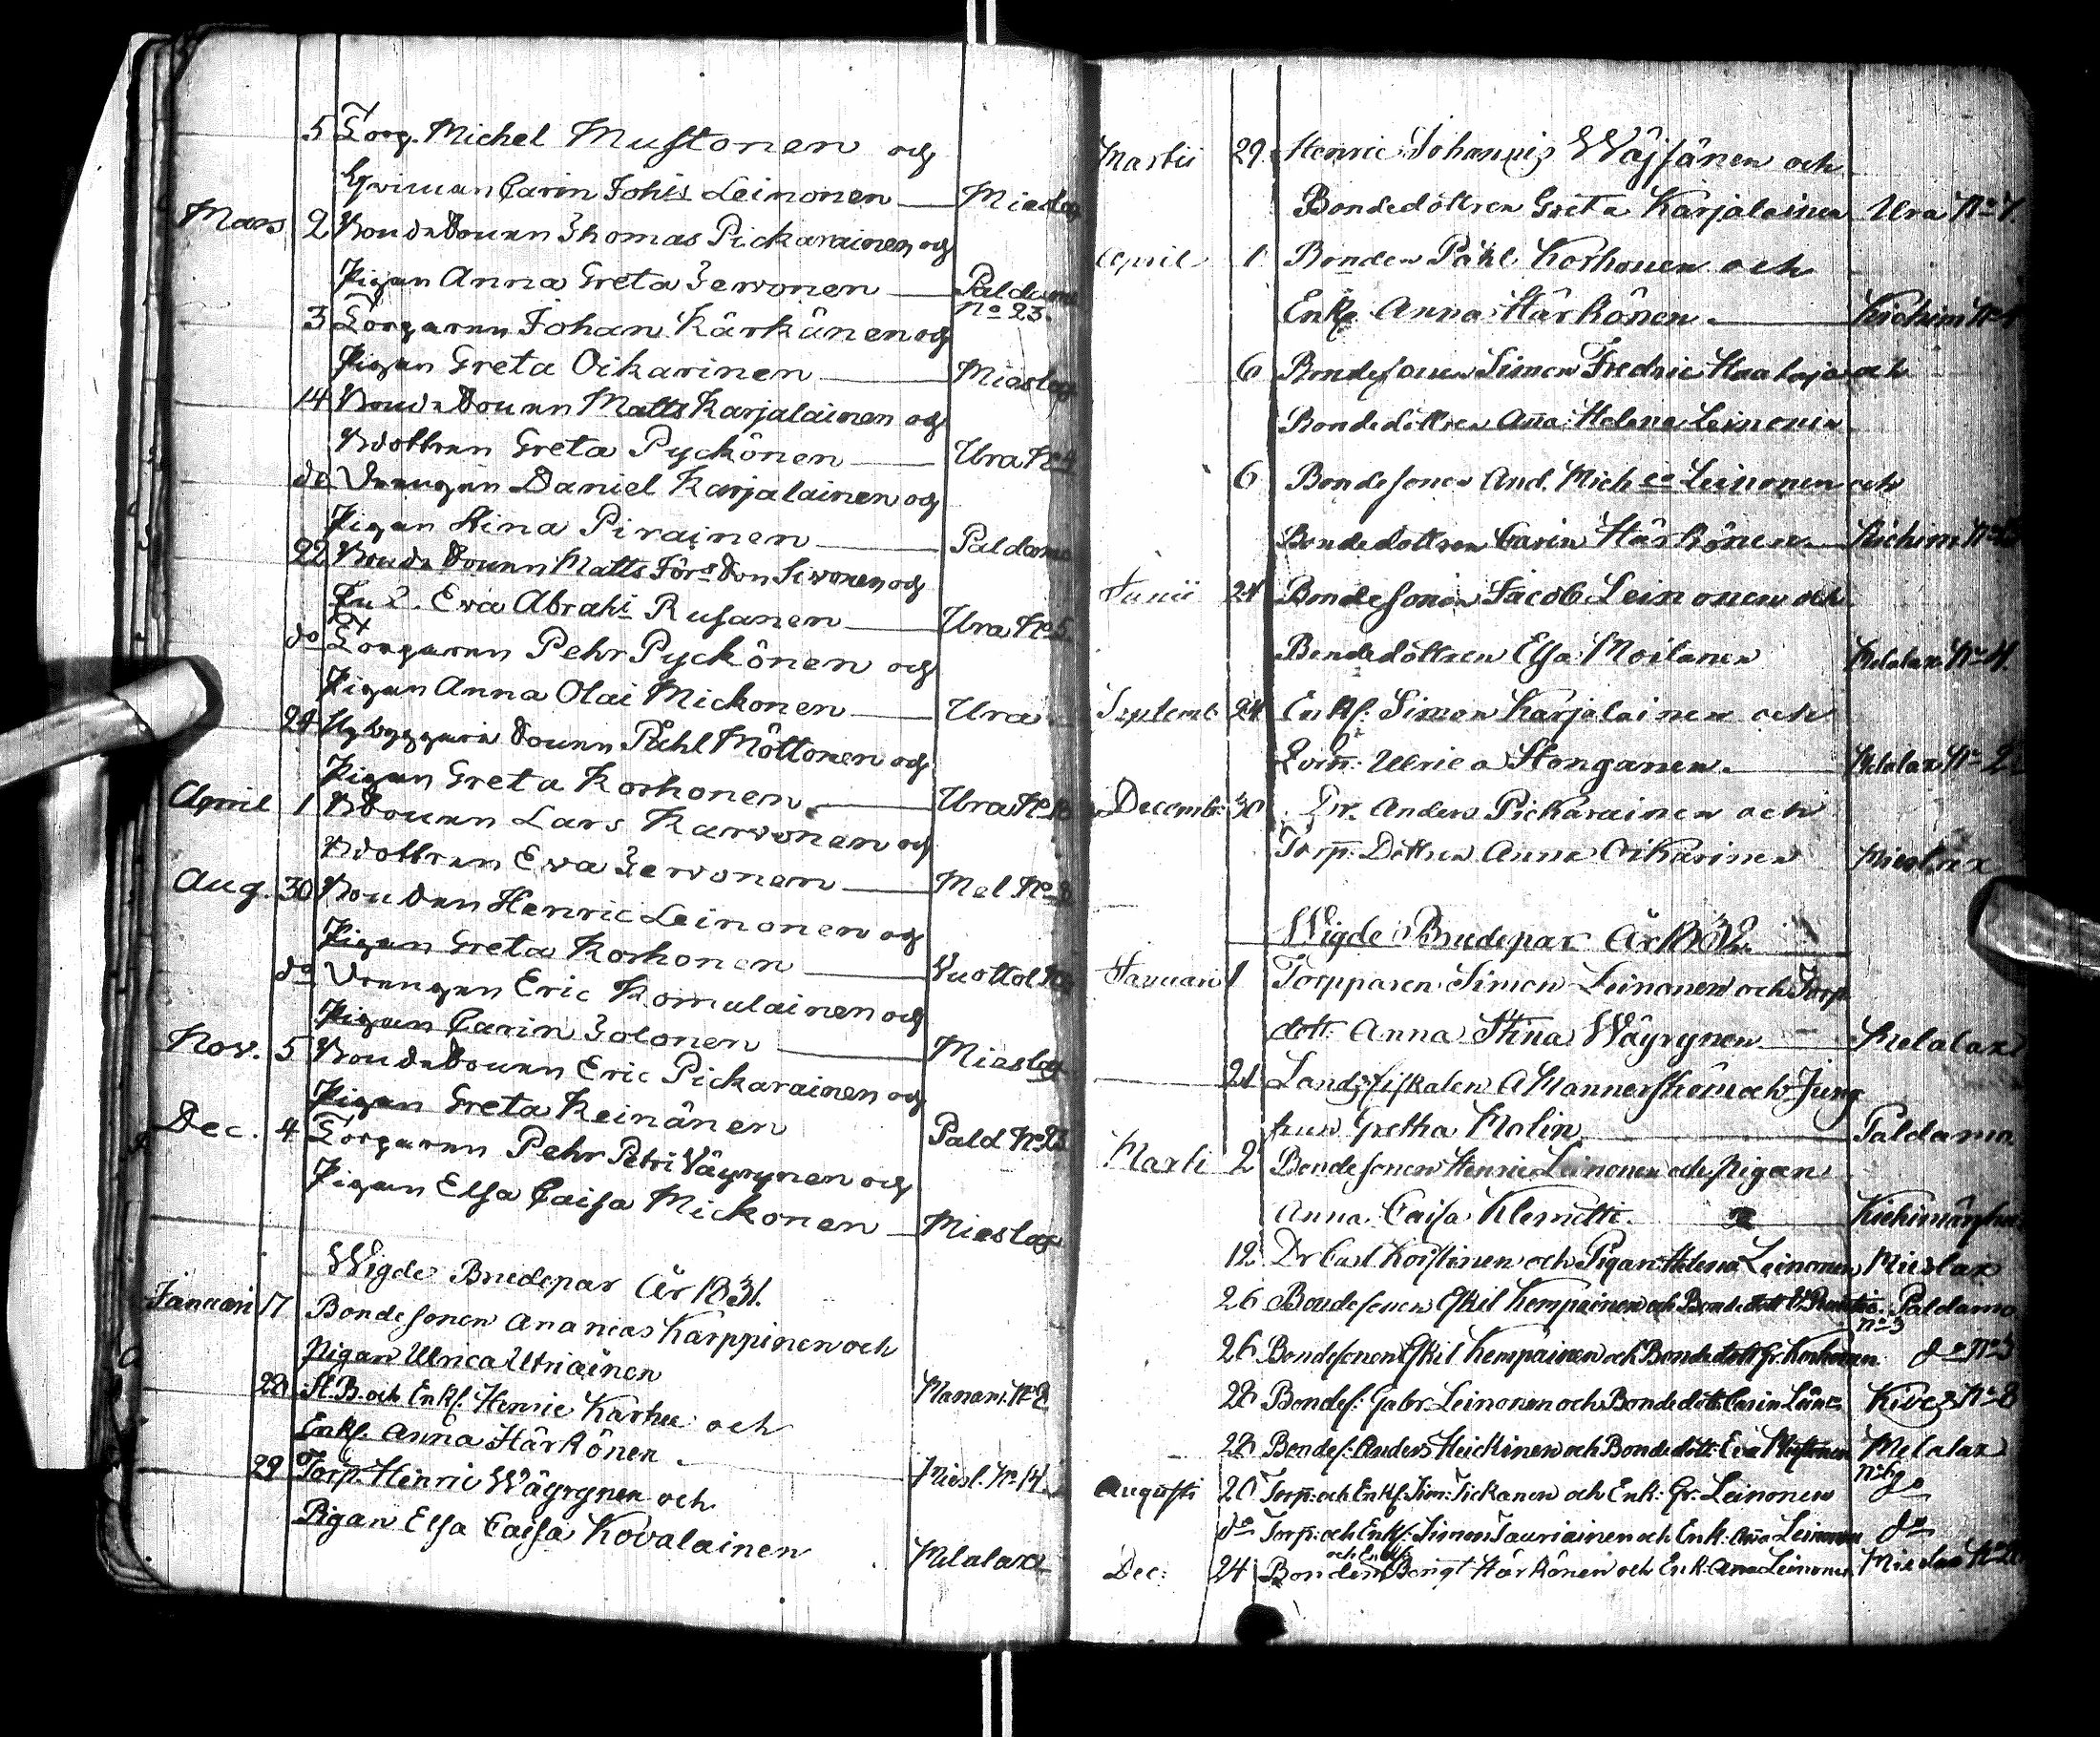 5 Torp. Michel Mustonen och
Carin Johis Leinonen — Mieslax
Mars 2 Bondesonen Thomas Pickarainen och
Pigan Anna Greta Jewonen — Paldamo
No 23.
3 Torparen Johan Kärkänen och
Pigan Greta Oikarinen — Mieslax
14 Bondesonen Matts Karjalainen och
Bdottren Greta Pyckönen — Ura No 4
do Drengen Daniel Karjalainen och
Pigan Stina Pirainen — Paldamo
22 Bondesonen Matts Jörs Son Sivonen och
Eva Abrahs Rusanen — Ura No 5.
do Torparen Pehr Pyckönen och
Pigan Anna Olai Mickonen — Ura
24 Nybyggare Sonen Påhl Möttönen och
Pigan Greta Korhonen — Ura No
April 1 BSonen Lars Karvonen och
Bdottren Eva Jewonen — Mel No
Aug. 30 Bonden Henric Leinonen och
Pigan Greta Korhonen — Vuottol No
do Drengen Eric Komulainen och
Pigan Carin Jolonen — Mieslax
Nov. 5 Bondesonen Eric Pickarainen och
Pigan Greta Keinänen Pald No 23
Dec. 4 Torparen Pehr Petri Väyrynen och
Pigan Elsa Caisa Mickonen — Mieslax
Wigde Brudepar År 1831.
Januari 17 Bondesonen Ananias Kärppinen och
Pigan Ulrica Utriainen Manam. No 2
28 St. B. och Enkl. Henric Karhu och
Enkl. Anna Härkönen. Miesl. No 14.
29 Torp. Henric Wäyrynen och
Pigan Elsa Caisa Kovalainen Melalax
Martii 29 Henric Johannis Wäjsänen och
Bondedottren Greta Karjalainen Ura No 7
April 1 Bonden Påhl Korhonen och
Enka Anna Härkönen. — Kiehim No
6 Bondesonen Simon Fredric Haataja och
Bondedottren Anna Helena Leinonen
6 Bondesonen And. Mich Leinonen och
Bondedottren Carin Härkönen — Kiehim No
Junii 24 Bondesonen Jacob Leinonen och
Bondedottren Elsa Moilanen Melalax No 4.
Septemb. 24 Enkl. Simon Karjalainen och
Ulrica Honganen. — Melalax No 2
Decemb. 30 Dr. Anders Pickarainen och
Torp. Dottren Anna Oikarinen Mieslax
Wigde Brudepar År 1832.
Januari 1 Torpparen Simon Leinonen och Torp.
dott. Anna Stina Wäyrynen — Melalax
21 Landsfiskalen A Mannerström och Jung
frun Gretha Molin — Paldamo
Marti 2 Bondesonen Henric Leinonen och Pigan
Anna Caisa Klemetti. —
12 Dr Carl Korstinen och Pigan Helena Leinonen Mieslax
26 Bondesonen Eskil Kempainen och Bondedott Paldamo
No 3
26 Bondesonen Eskil Kempainen och Bondedott Gr. Korhonen do No 3
28 Bondes. Gabr. Leinonen och Bondedott Carin Kives No 8
28 Bondes. Anders Heickinen och Bondedott. Eva Mustonen Melalax
No 6
Augusti 20 Torp. och Enkl. Sim. Tickanen och Enk. Gr. Leinonen do
do Torp. och Enkl. Simon Tauriainen och Enk. Anna Leinonen do
och Enkl
Dec. 24 Bonden Bengt Härkönen och Enk. Anna Leinonen Mieslax No